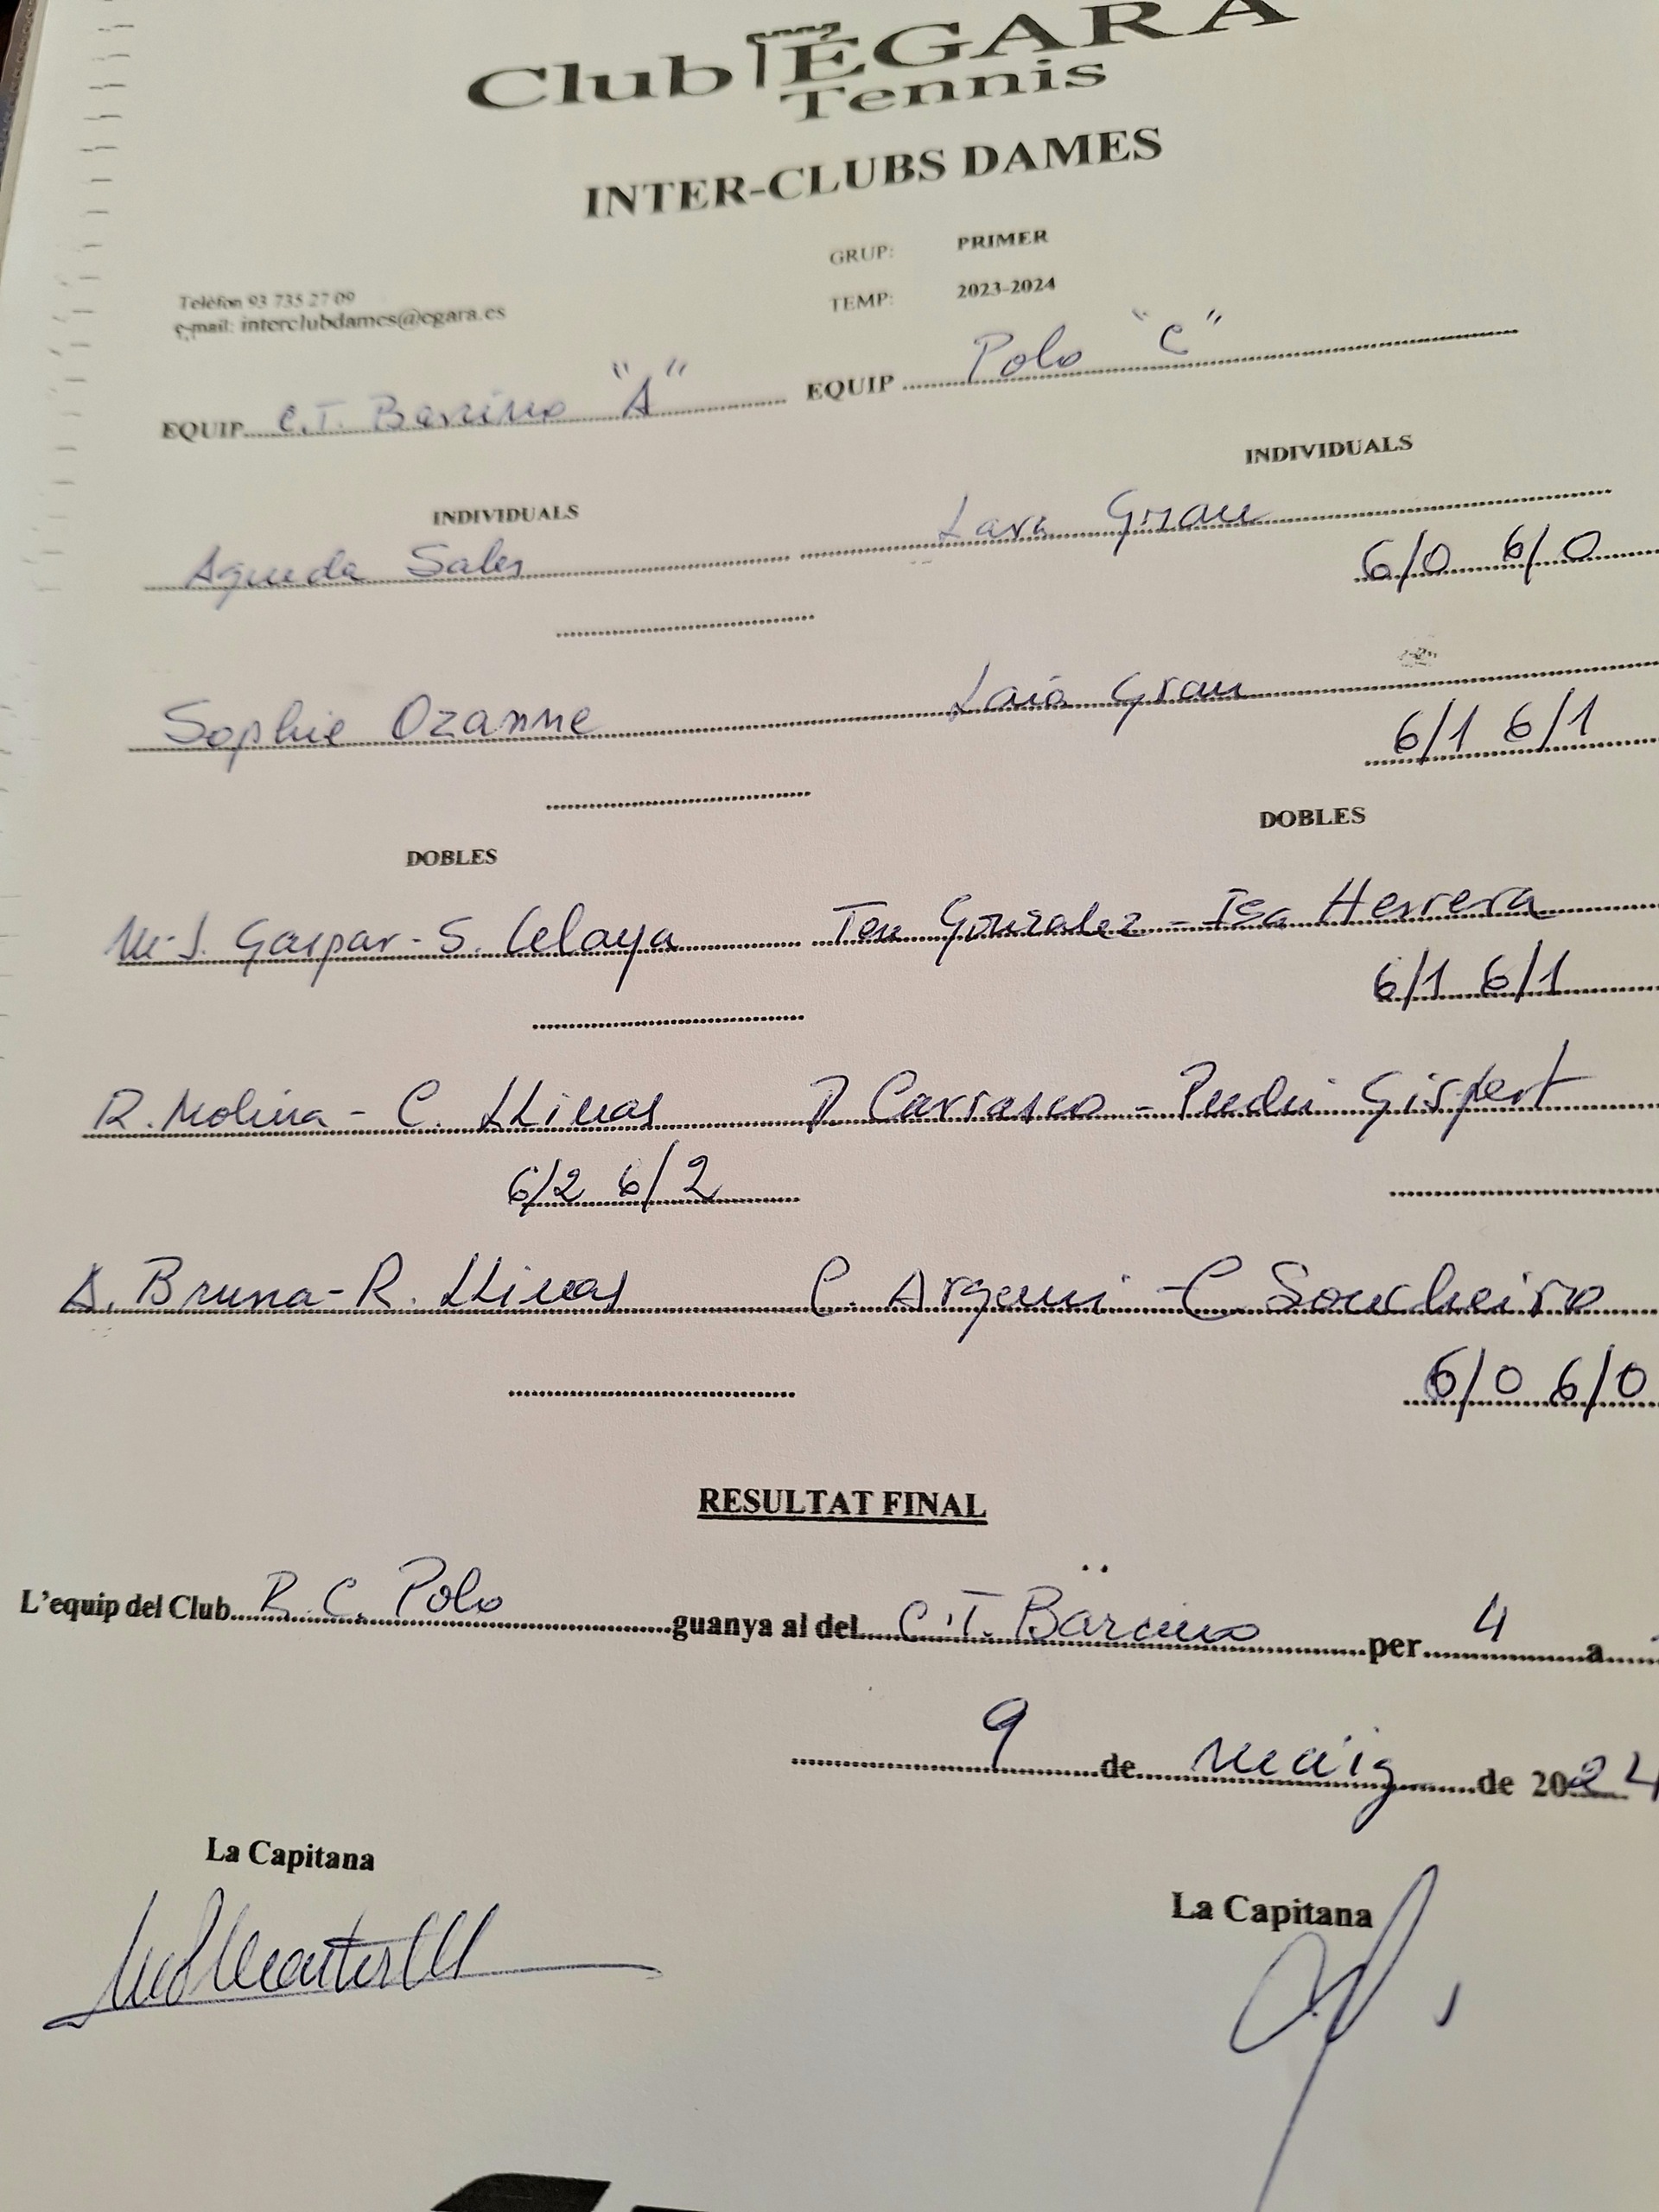 Club ÈGARA
Tennis
INTER-CLUBS DAMES
GRUP: PRIMER
TEMP: 2023-2024
Telèfon 93 735 27 09
e-mail: interclubdames@egara.es
EQUIP C.T. Barcino "A" EQUIP Polo "C"
INDIVIDUALS INDIVIDUALS
Agueda Sales Lara Grau
6/0 6/0
Sophie Ozanne Laia Grau
6/1 6/1
DOBLES DOBLES
M.J. Gaspar - S. Celaya Tere Gonzalez - Isa Herrera
6/1 6/1
R. Molina - C. LLinas Carrasco - Gispert
6/2 6/2
A. Bruna - R. LLinas C. Argemi - C. Soucheiro
6/0 6/0
RESULTAT FINAL
L'equip del Club R.C. Polo guanya al del C.T. Barcino per 4 a
9 de maig de 2024
La Capitana La Capitana